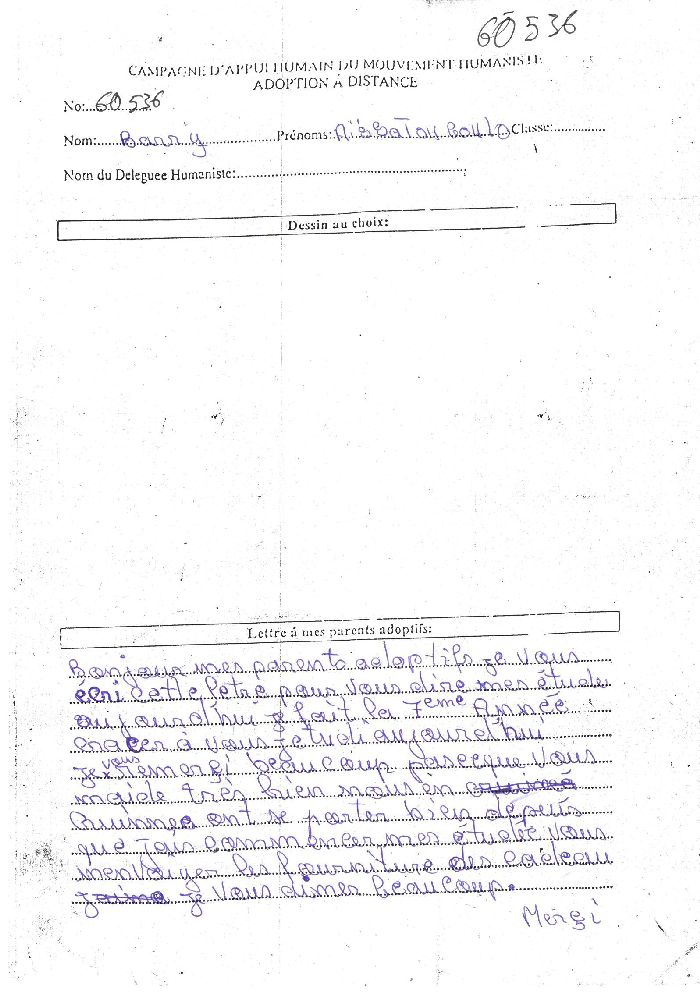 60536
CAMPAGNE D'APPUI HUMAIN DU MOUVEMENT HUMANISTE
ADOPTION À DISTANCE
No:..60536
Nom:......Barry..............Prénoms: Aïssatou Boulo Classe:..............
Nom du Deleguee Humaniste:..........................................................
Dessin au choix:
Lettre à mes parents adoptifs:
Bonjour mes parents adoptifs je vous
écri cette letre pour vous dire mes étude
aujourd'hui je fait la 7eme Année
gracer à vous j'etudi aujourd'hui
je vous remergi beaucoup pasecque vous
maide très bien nous en
Guinnea ont se porter bien depuis
que jais commencer mes étudét vous
menvoyer les fourniture des cadeau
je vous aimes beaucoup.
Mergi